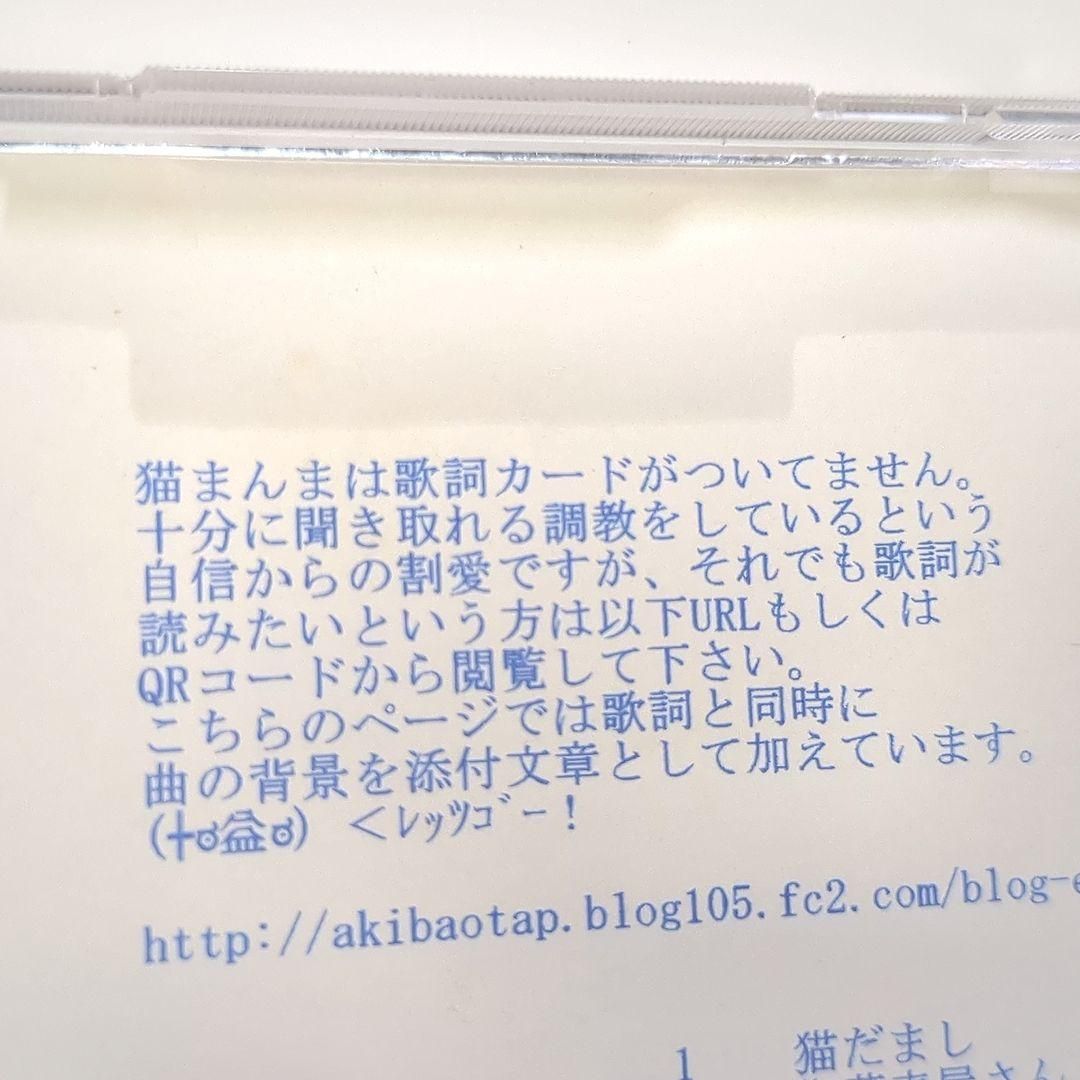 猫まんまは歌詞カードがついてません。
十分に聞き取れる調教をしているという
自信からの割愛ですが、それでも歌詞が
読みたいという方は以下URLもしくは
QRコードから閲覧して下さい。
こちらのページでは歌詞と同時に
曲の背景を添付文章として加えています。
(╋ಠ益ಠ) <ﾚｯﾂｺﾞｰ!
http://akibaotap.blog105.fc2.com/blog-e
1 猫だまし